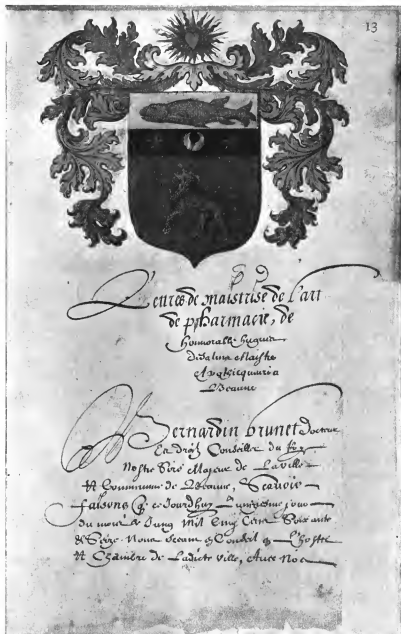 13
Lettres de maistrise de l'art
de pharmacie, de
honnorable hugues
de salins Maistre
Apothicquaire a
Beaune
Bernardin brunet docteur
En droit Conseiller du Roy
Nostre Sire Majeur de La ville
Et Commune de Beaune, Scavoir
faisons q ce Jourdhuy jour
du mois de Jung Mil Cinq Cens Soixante
& Seize Nous Conseil
Et Chambre de Ladicte ville, Avec Nos